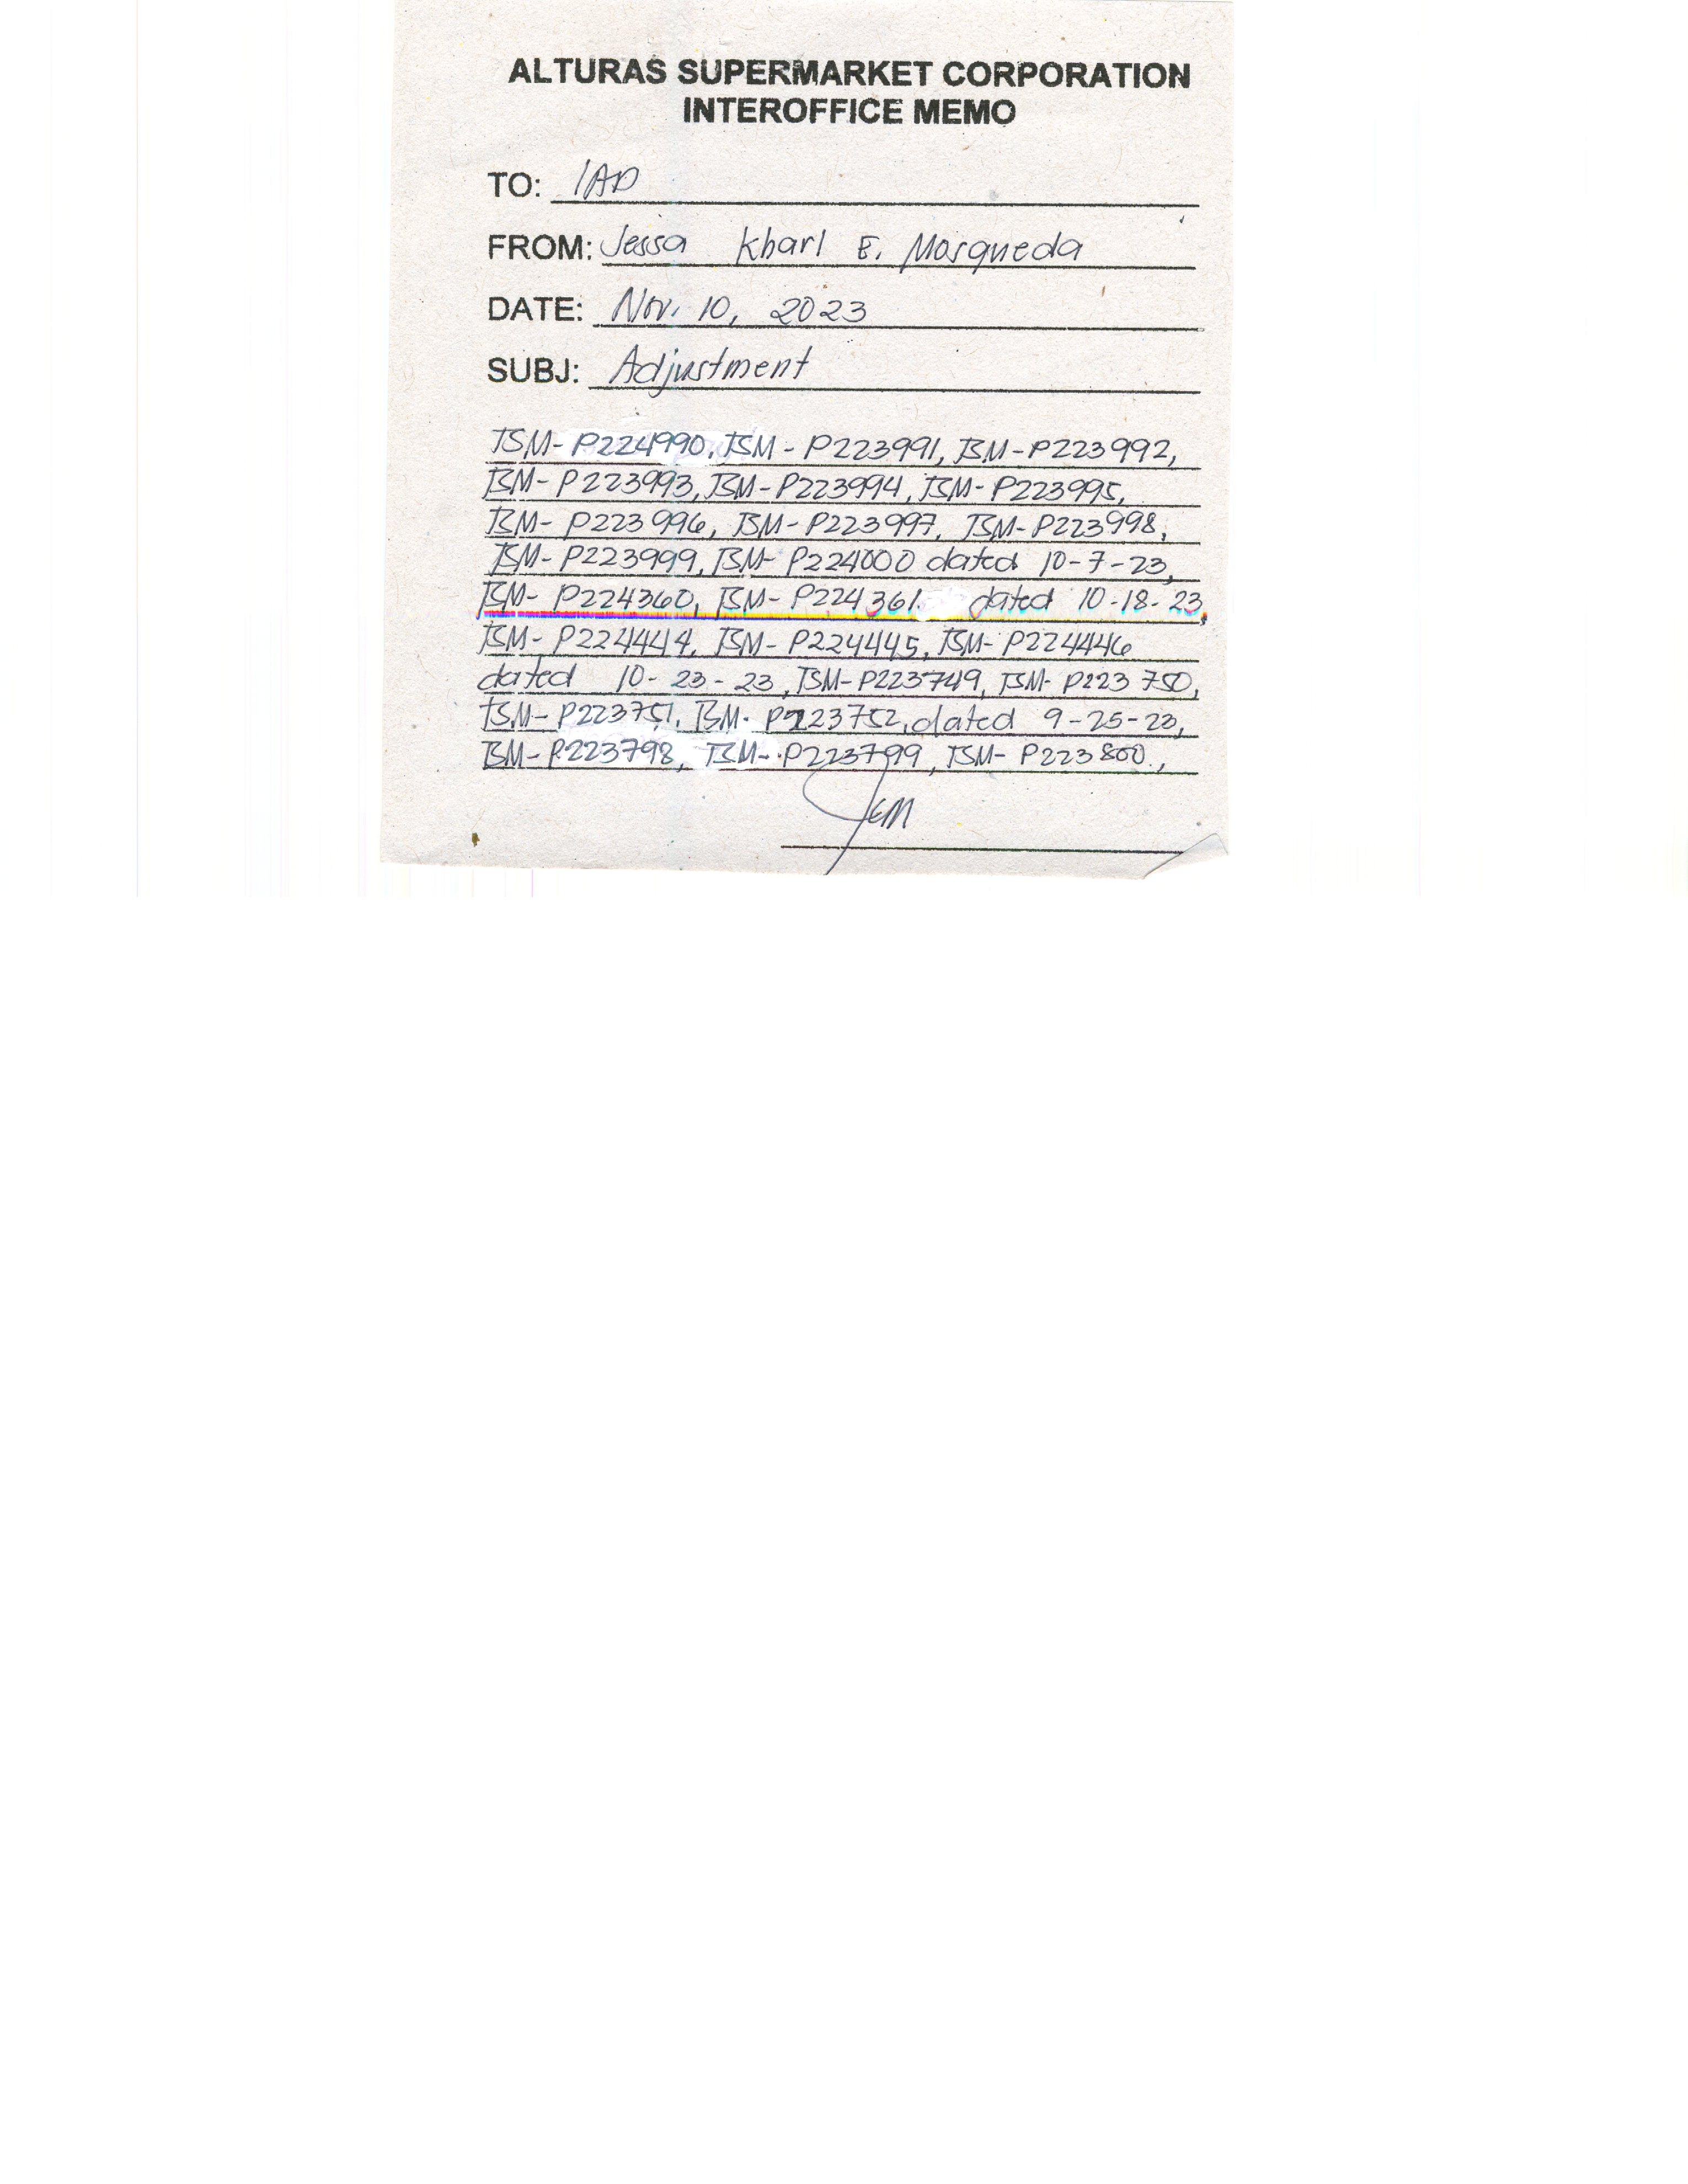 ALTURAS SUPERMARKET CORPORATION
INTEROFFICE MEMO
TO: IAD
FROM: Jessa Kharl E. Mosqueda
DATE: Nov. 10, 2023
SUBJ: Adjustment
TSM- P224990, TSM - P223991, TSM-P223992,
TSM- P223993, TSM-P223994, TSM- P223995,
TSM- P223996, TSM-P223997, TSM-P223998,
TSM-P223999, TSM- P224000 dated 10-7-23,
TSM- P224360, TSM- P224361 dated 10-18-23,
TSM- P224444, TSM- P224445, TSM- P224446
dated 10-23-23, TSM-P223749, TSM- P223750,
TSM- P223751, TSM- P223752, dated 9-25-23,
TSM- P223798, TSM- P223799, TSM- P223800.,
JEM